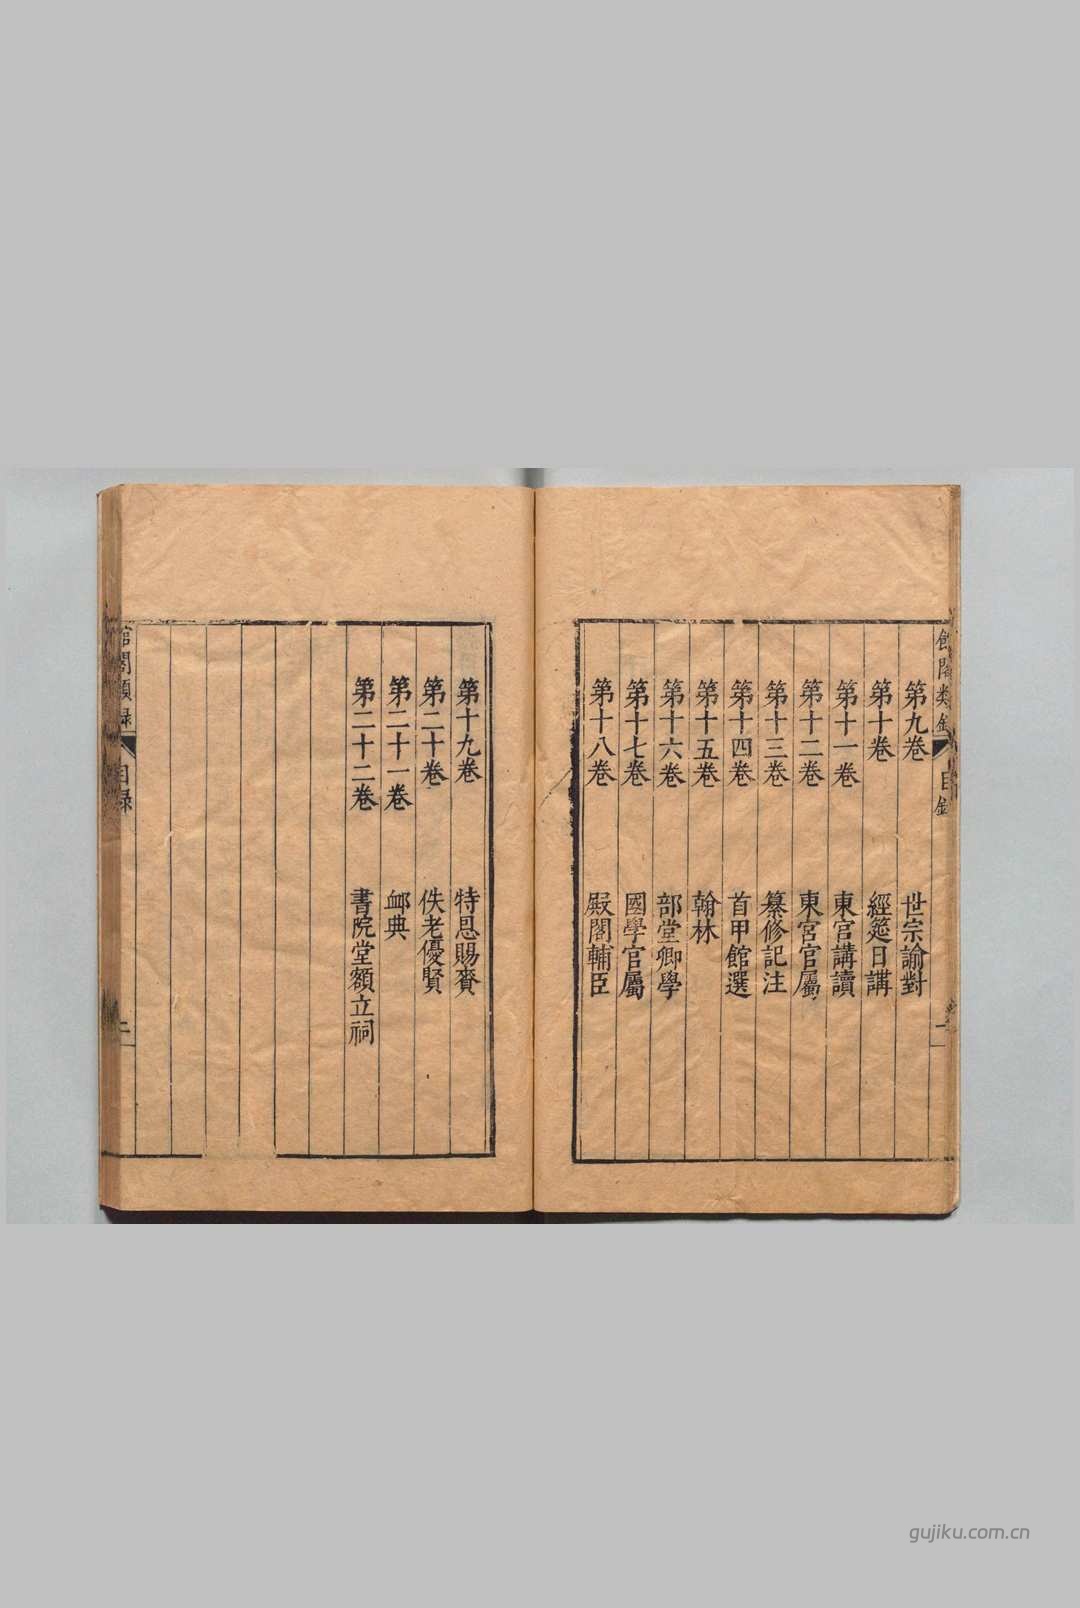 館閣類錄 目錄
第九卷 世宗諭對
第十卷 經筵日講
第十一卷 東宮講讀
第十二卷 東宮官屬
第十三卷 纂修記注
第十四卷 首甲館選
第十五卷 翰林
第十六卷 部堂卿學
第十七卷 國學官屬
第十八卷 殿閣輔臣
第十九卷 特恩賜賚
第二十卷 佚老優賢
第二十一卷 䘏典
第二十二卷 書院堂額立祠
館閣類録 目録 二
gujiku.com.cn